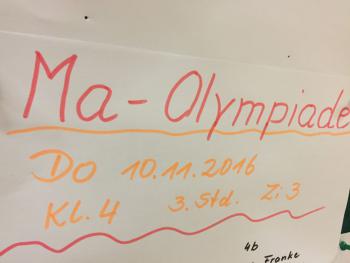 Ma-Olympiade
Do 10.11.2016
Kl.4 3.Std. Zi 3
4b
Franke